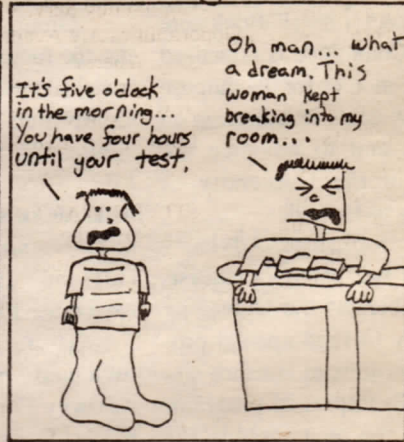 It's five o'clock
in the morning...
You have four hours
until your test.
Oh man... what
a dream. This
woman kept
breaking into my
room...